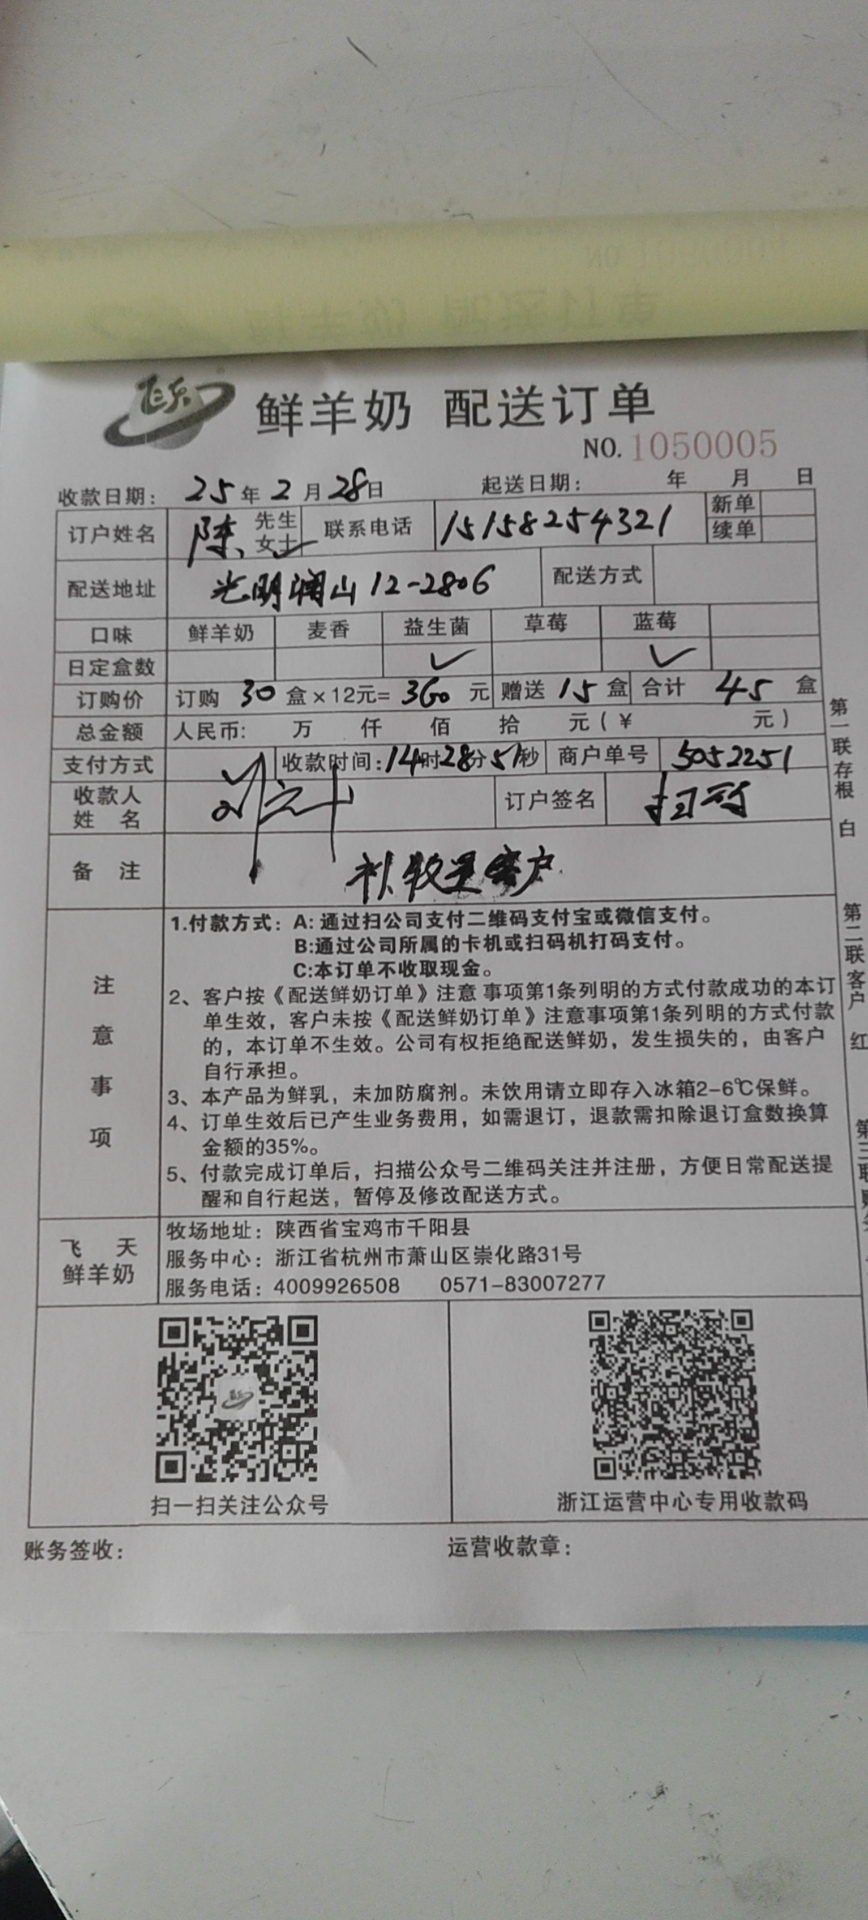 飞天
鲜羊奶 配送订单
NO. 1050005
收款日期: 25年2月28日 起送日期: 年 月 日
订户姓名 陈 先生 女士 ✓ 联系电话 15158254321 新单 续单
配送地址 光明澜山12-2806 配送方式
口味 鲜羊奶 麦香 益生菌 草莓 蓝莓
日定盒数 ✓ ✓
订购价 订购 30 盒×12元= 360 元 赠送 15 盒 合计 45 盒
总金额 人民币: 万 仟 佰 拾 元(¥ 元)
支付方式 ✓ 收款时间:14时28分51秒 商户单号 5052251
收款人姓名 订户签名
备注 客户
注意事项
1.付款方式: A: 通过扫公司支付二维码支付宝或微信支付。
B:通过公司所属的卡机或扫码机打码支付。
C:本订单不收取现金。
2、客户按《配送鲜奶订单》注意 事项第1条列明的方式付款成功的本订
单生效，客户未按《配送鲜奶订单》注意事项第1条列明的方式付款
的，本订单不生效。公司有权拒绝配送鲜奶，发生损失的，由客户
自行承担。
3、本产品为鲜乳，未加防腐剂。未饮用请立即存入冰箱2-6℃保鲜。
4、订单生效后已产生业务费用，如需退订，退款需扣除退订盒数换算
金额的35%。
5、付款完成订单后，扫描公众号二维码关注并注册，方便日常配送提
醒和自行起送，暂停及修改配送方式。
飞天鲜羊奶
牧场地址：陕西省宝鸡市千阳县
服务中心：浙江省杭州市萧山区崇化路31号
服务电话：4009926508 0571-83007277
扫一扫关注公众号 浙江运营中心专用收款码
账务签收: 运营收款章:
第一联存根 白
第二联客户 红
第三联